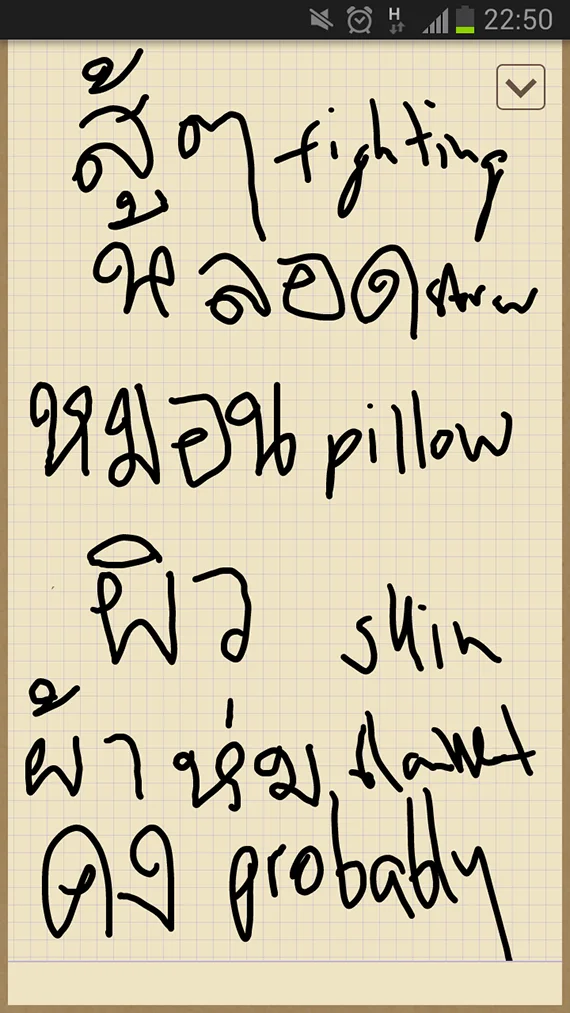 H 22:50
สู้ๆ fighting
หลอด straw
หมอน pillow
ผิว skin
ผ้าห่ม blanket
คง probably